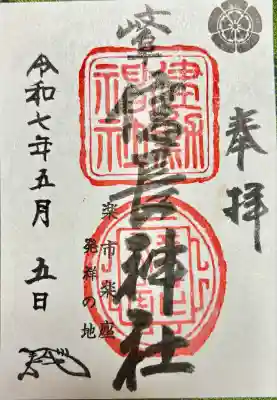 奉拝
岐阜信長神社
建勲
神社
楽市楽座
発祥の地
令和七年五月五日